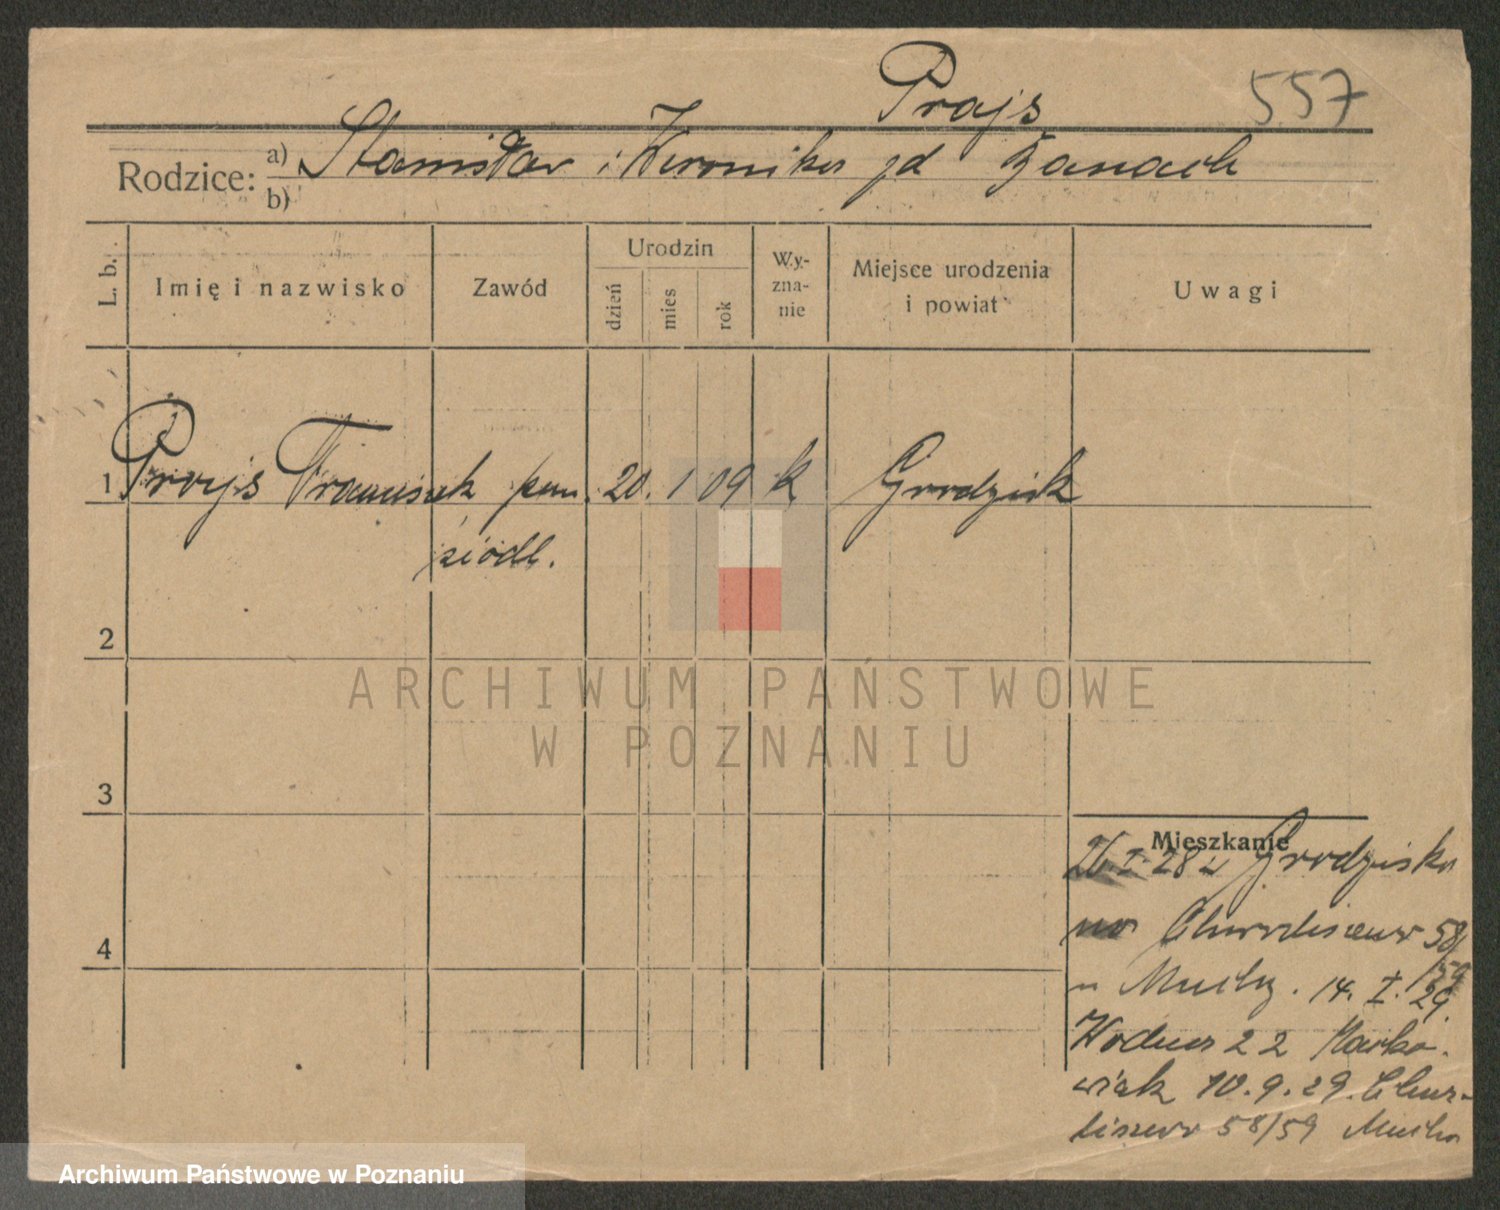 Prajs 557
Rodzice: a) Stanisław i Weronika zd
b)
L. b.
Imię i nazwisko
Zawód
Urodzin
dzień
mies
rok
Wy-
zna-
nie
Miejsce urodzenia
i powiat
Uwagi
1 Prajs Franciszek pom. 20. 1 09 k Grodzisk
siodl.
2
ARCHIWUM PAŃSTWOWE
W POZNANIU
3
Mieszkanie
26.I.28 z Grodziska
58/
59
14. I. 29.
Wodna 22 Marko-
wiak 10.9.29.
58/59 Mucha
4
Archiwum Państwowe w Poznaniu